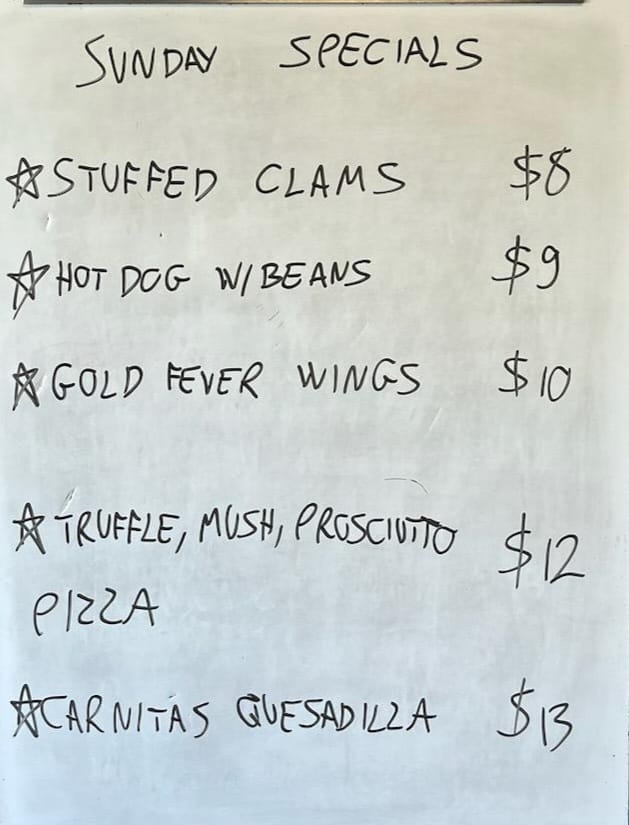 SUNDAY SPECIALS
☆ STUFFED CLAMS $8
☆ HOT DOG W/ BEANS $9
☆ GOLD FEVER WINGS $10
☆ TRUFFLE, MUSH, PROSCIUTTO $12
PIZZA
☆ CARNITAS QUESADILLA $13